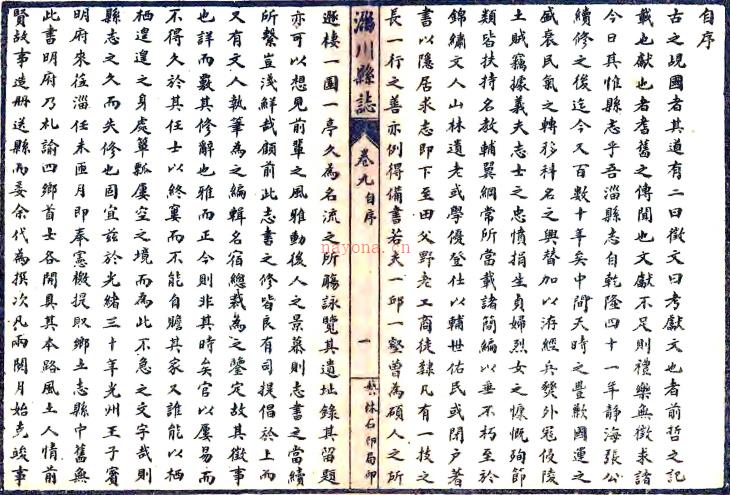 自序
古之覘國者其道有二曰徵文曰考獻文也者前哲之記
載也獻也者耆舊之傳聞也文獻不足則禮樂無徵求諸
今日其惟縣志乎吾淄縣志自乾隆四十一年靜海張公
續修之後迄今又百數十年矣中間天時之豐歉國運之
盛衰民氣之轉移科名之興替加以洊經兵燹外寇侵陵
土賊竊據義夫志士之忠憤捐生貞婦烈女之慷慨殉節
類皆扶持名教輔翼綱常所當載諸簡編以垂不朽至於
錦繡文人山林遺老或學優登仕以輔世佑民或閉戶著
書以隱居求志即下至田父野老工商徒隸凡有一技之
長一行之善亦例得備書若夫一邱一壑曾為碩人之所
淄川縣誌
卷九自序
一
藝林石印局印
遊棲一園一亭久為名流之所觴詠覽其遺址錄其留題
亦可以想見前輩之風雅動後人之景慕則志書之當續
所繫豈淺鮮哉顧前此志書之修皆良有司提倡於上而
又有文人執筆為之編輯名宿總裁為之鑒定故其徵事
也詳而覈其修辭也雅而正今則非其時矣官以屢易而
不得久於其任士以終窶而不能自贍其家又誰能以栖
栖遑遑之身處簞瓢屢空之境而為此不急之文字哉則
縣志之久而失修也固宜茲於光緒三十年光州王子賓
明府來蒞淄任未匝月即奉憲檄提取鄉土志縣中舊無
此書明府乃札諭四鄉首士各開具其本路風土人情前
賢故事造册送縣而委余代為撰次凡兩閱月始克竣事
nayona.cn